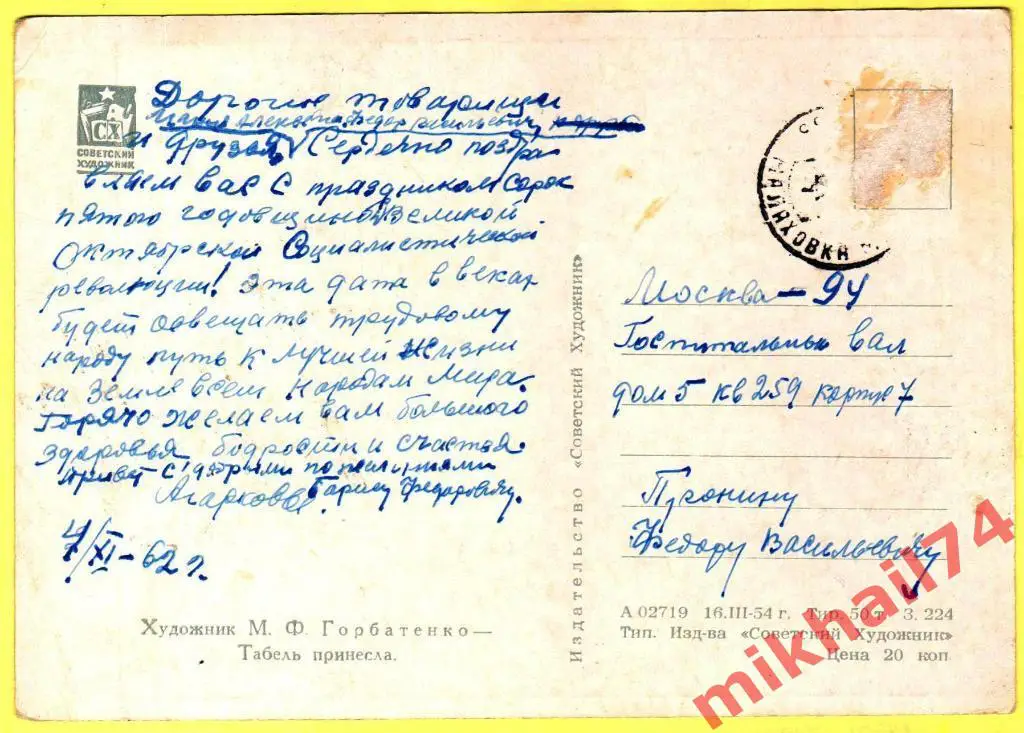 СХ
СОВЕТСКИЙ
ХУДОЖНИК
Дорогие товарищи
Федор Васильевич,
и друзья! Сердечно поздра
вляем вас с праздником сорок
пятого годовщиной Великой
Октябрской Социалистической
революции! Эта дата в веках
будет освещать трудовому
народу путь к лучшей жизни
на земле всем народам мира.
Горячо желаем вам большого
здоровья бодрости и счастья.
привет с добрыми пожеланиями
Агарковы. Борису Федоровичу.
4/XI-62 г.
Художник М. Ф. Горбатенко—
Табель принесла.
Издательство «Советский Художник»
МАЛАХОВКА
Москва-94
Госпитальн вал
дом 5 кв 259 корпус 7
Пугонину
Федору Васильевичу
А 02719 16.III-54 г. Тир. 50 т. З. 224
Тип. Изд-ва «Советский Художник»
Цена 20 коп
mikhail74